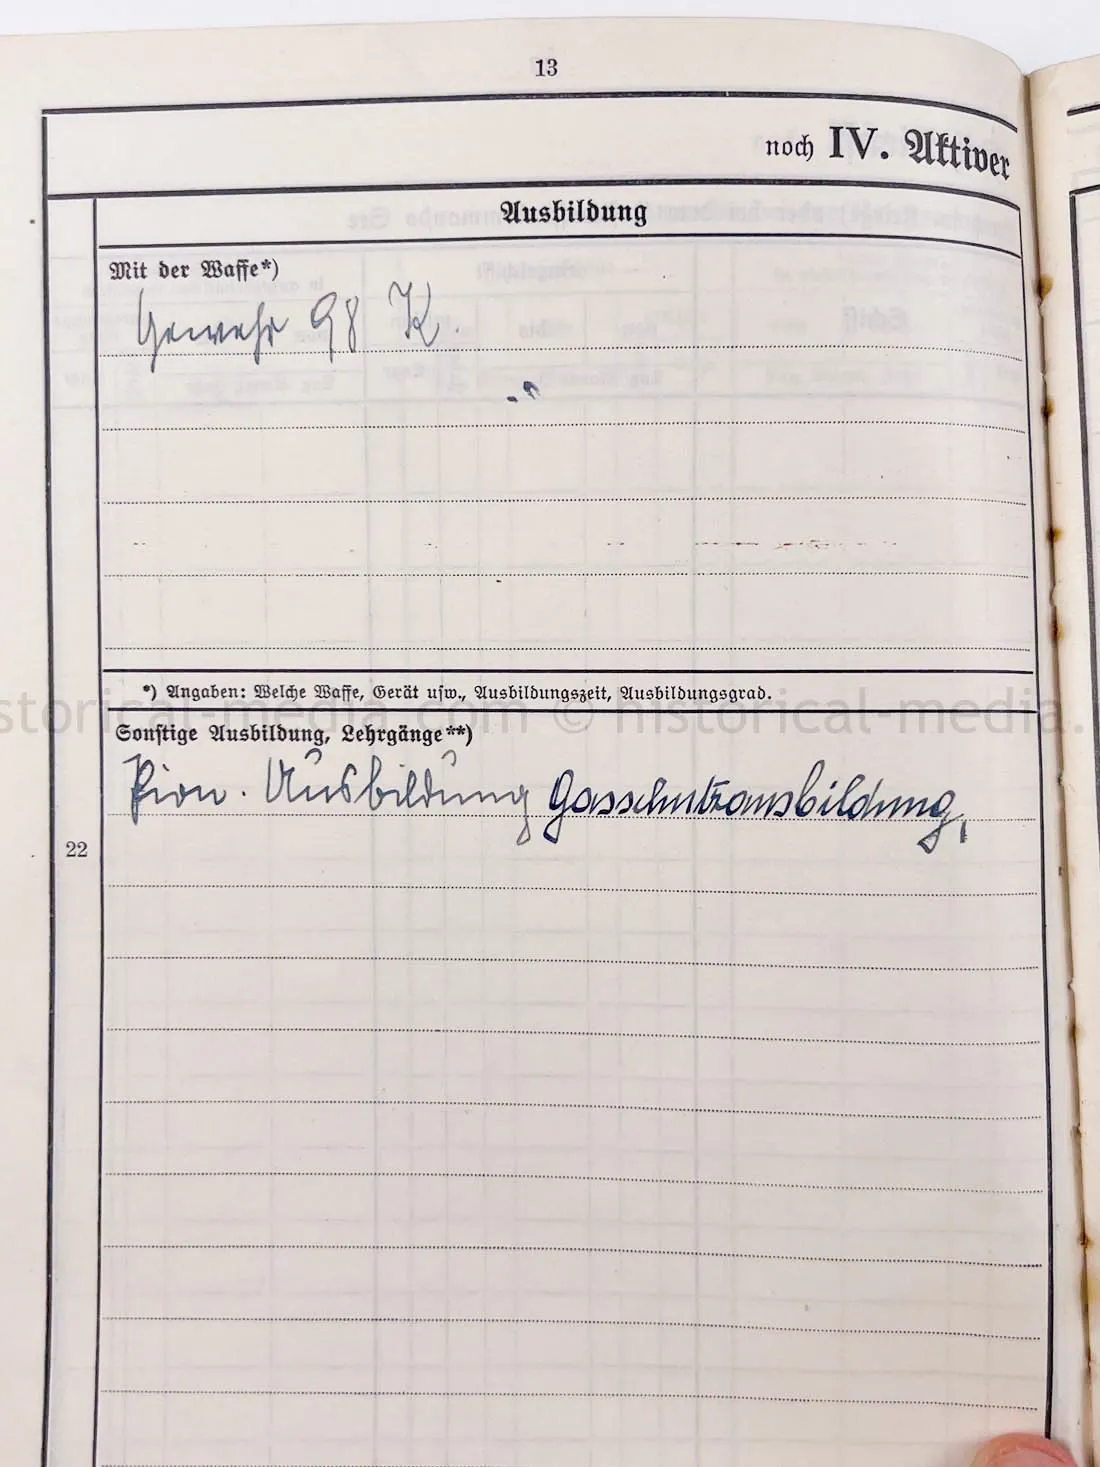 13
noch IV. Aktiver
Ausbildung
Mit der Waffe*)
Gewehr 98 K.
*) Angaben: Welche Waffe, Gerät usw., Ausbildungszeit, Ausbildungsgrad.
storical-media.com © historical-media.
Sonstige Ausbildung, Lehrgänge**)
Pion. Ausbildung Gasschutzausbildung,
22